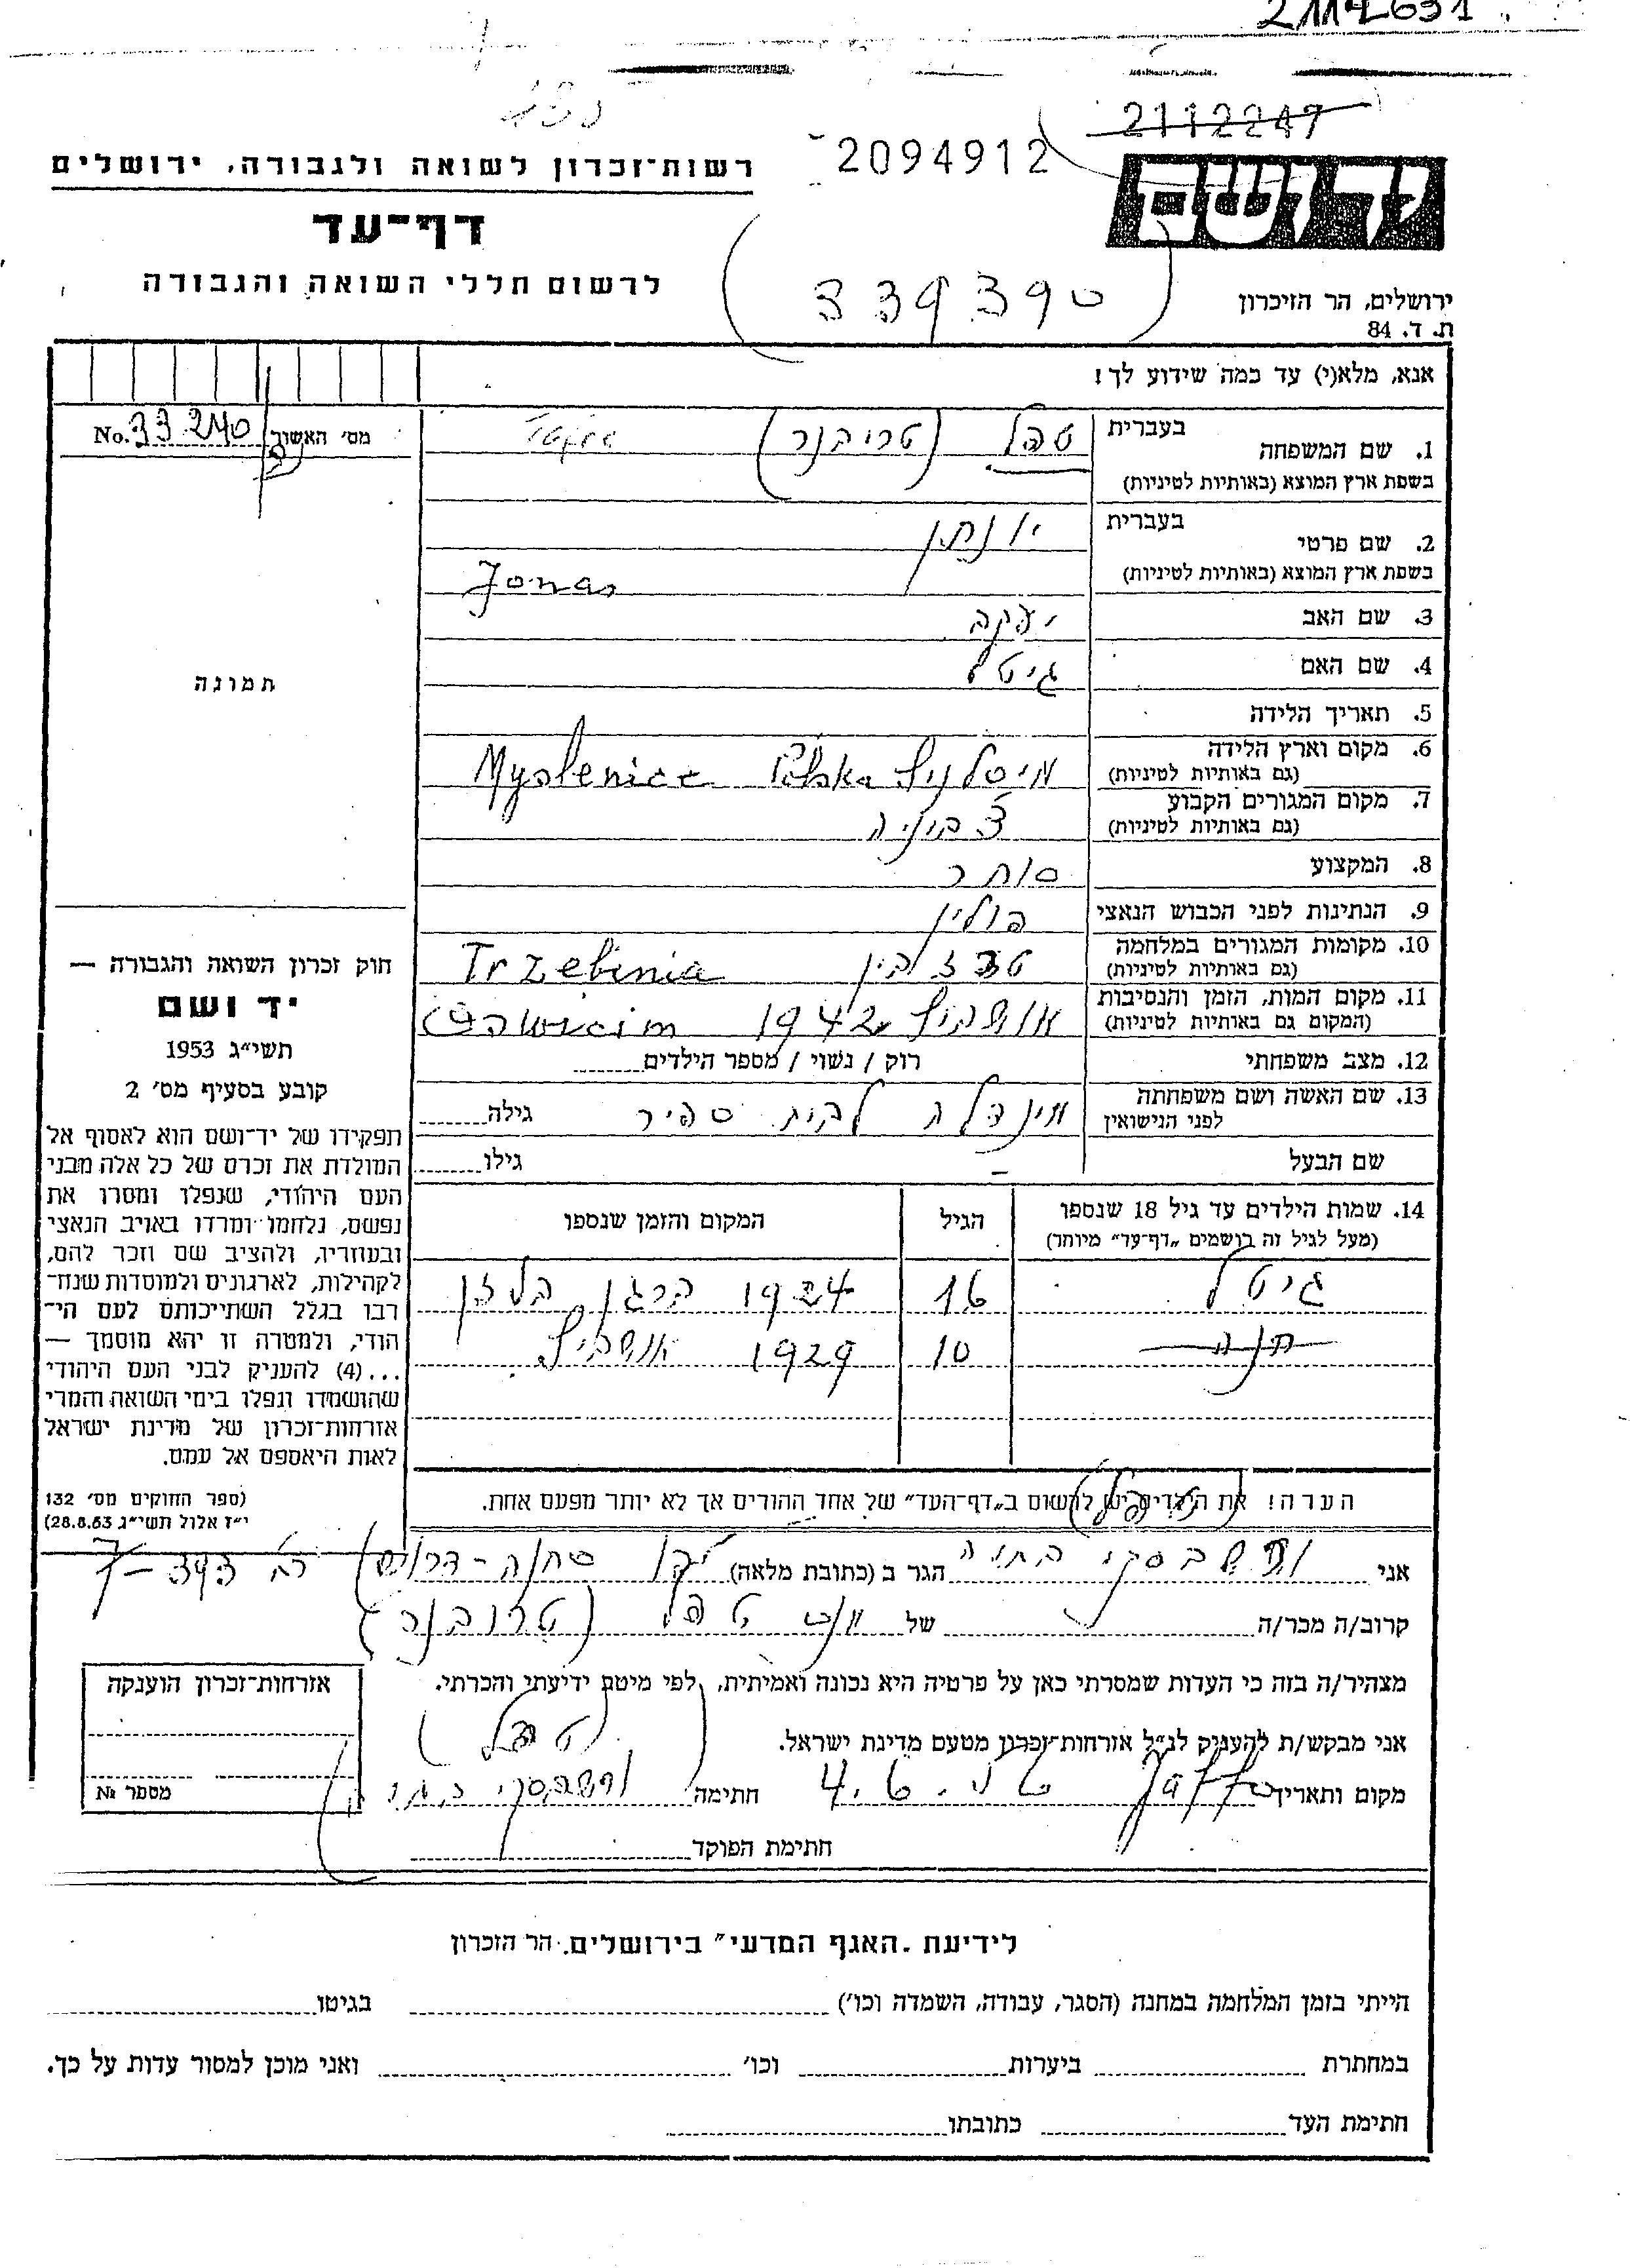 2112247
2094912
רשות־זכרון לשואה ולגבורה, ירושלים
יד ושם
דף־עד
לרשום חללי השואה והגבורה
339390
ירושלים, הר הזיכרון
ת. ד. 84
אנא, מלא(י) עד כמה שידוע לך!
מס׳ האשור No. 33240
1. שם המשפחה בעברית טפל (טרובנר)
בשפת ארץ המוצא (באותיות לטיניות)
2. שם פרטי בעברית יונתן
בשפת ארץ המוצא (באותיות לטיניות) Jonas
3. שם האב יעקב
4. שם האם גיטל
תמונה
5. תאריך הלידה
6. מקום וארץ הלידה
(גם באותיות לטיניות) Polska Myslenice
7. מקום המגורים הקבוע
(גם באותיות לטיניות)
8. המקצוע סוחר
9. הנתינות לפני הכבוש הנאצי פולין
10. מקומות המגורים במלחמה
(גם באותיות לטיניות) Trzebinia
11. מקום המות, הזמן והנסיבות
(המקום גם באותיות לטיניות) אושביץ 1942 Oswiecim
12. מצב משפחתי רוק / נשוי / מספר הילדים
13. שם האשה ושם משפחתה
לפני הנישואין מינדלה לבית ספיר גילה
שם הבעל – גילו
חוק זכרון השואה והגבורה —
יד ושם
תשי״ג 1953
קובע בסעיף מס׳ 2
תפקידו של יד־ושם הוא לאסוף אל
המולדת את זכרם של כל אלה מבני
העם היהודי, שנפלו ומסרו את
נפשם, נלחמו ומרדו באויב הנאצי
ובעוזריו, ולהציב שם וזכר להם,
לקהילות, לארגונים ולמוסדות שנח־
רבו בגלל השתייכותם לעם הי־
הודי, ולמטרה זו יהא מוסמך —
...(4) להעניק לבני העם היהודי
שהושמדו ונפלו בימי השואה והמרי
אזרחות־זכרון של מדינת ישראל
לאות היאספם אל עמם.
(ספר החוקים מס׳ 132
י״ז אלול תשי״ג 28.8.53)
14. שמות הילדים עד גיל 18 שנספו הגיל המקום והזמן שנספו
(מעל לגיל זה רושמים „דף־עד״ מיוחד)
גיטל 16 1924 ברגן בלזן
חנה 10 1929 אושביץ
הערה! את הילדים יש לרשום ב„דף־העד״ של אחד ההורים אך לא יותר מפעם אחת.
אני הגר ב (כתובת מלאה)
קרוב/ה מכר/ה של טפל (טרובנר)
מצהיר/ה בזה כי העדות שמסרתי כאן על פרטיה היא נכונה ואמיתית, לפי מיטב ידיעתי והכרתי.
אני מבקש/ת להעניק לנ״ל אזרחות־זכרון מטעם מדינת ישראל.
(טפל)
מקום ותאריך חתימה
חתימת הפוקד
אזרחות־זכרון הוענקה
מספר №
לידיעת „האגף המדעי״ בירושלים, הר הזכרון
הייתי בזמן המלחמה במחנה (הסגר, עבודה, השמדה וכו׳) בגיטו
במחתרת ביערות וכו׳ ואני מוכן למסור עדות על כך.
חתימת העד כתובתו